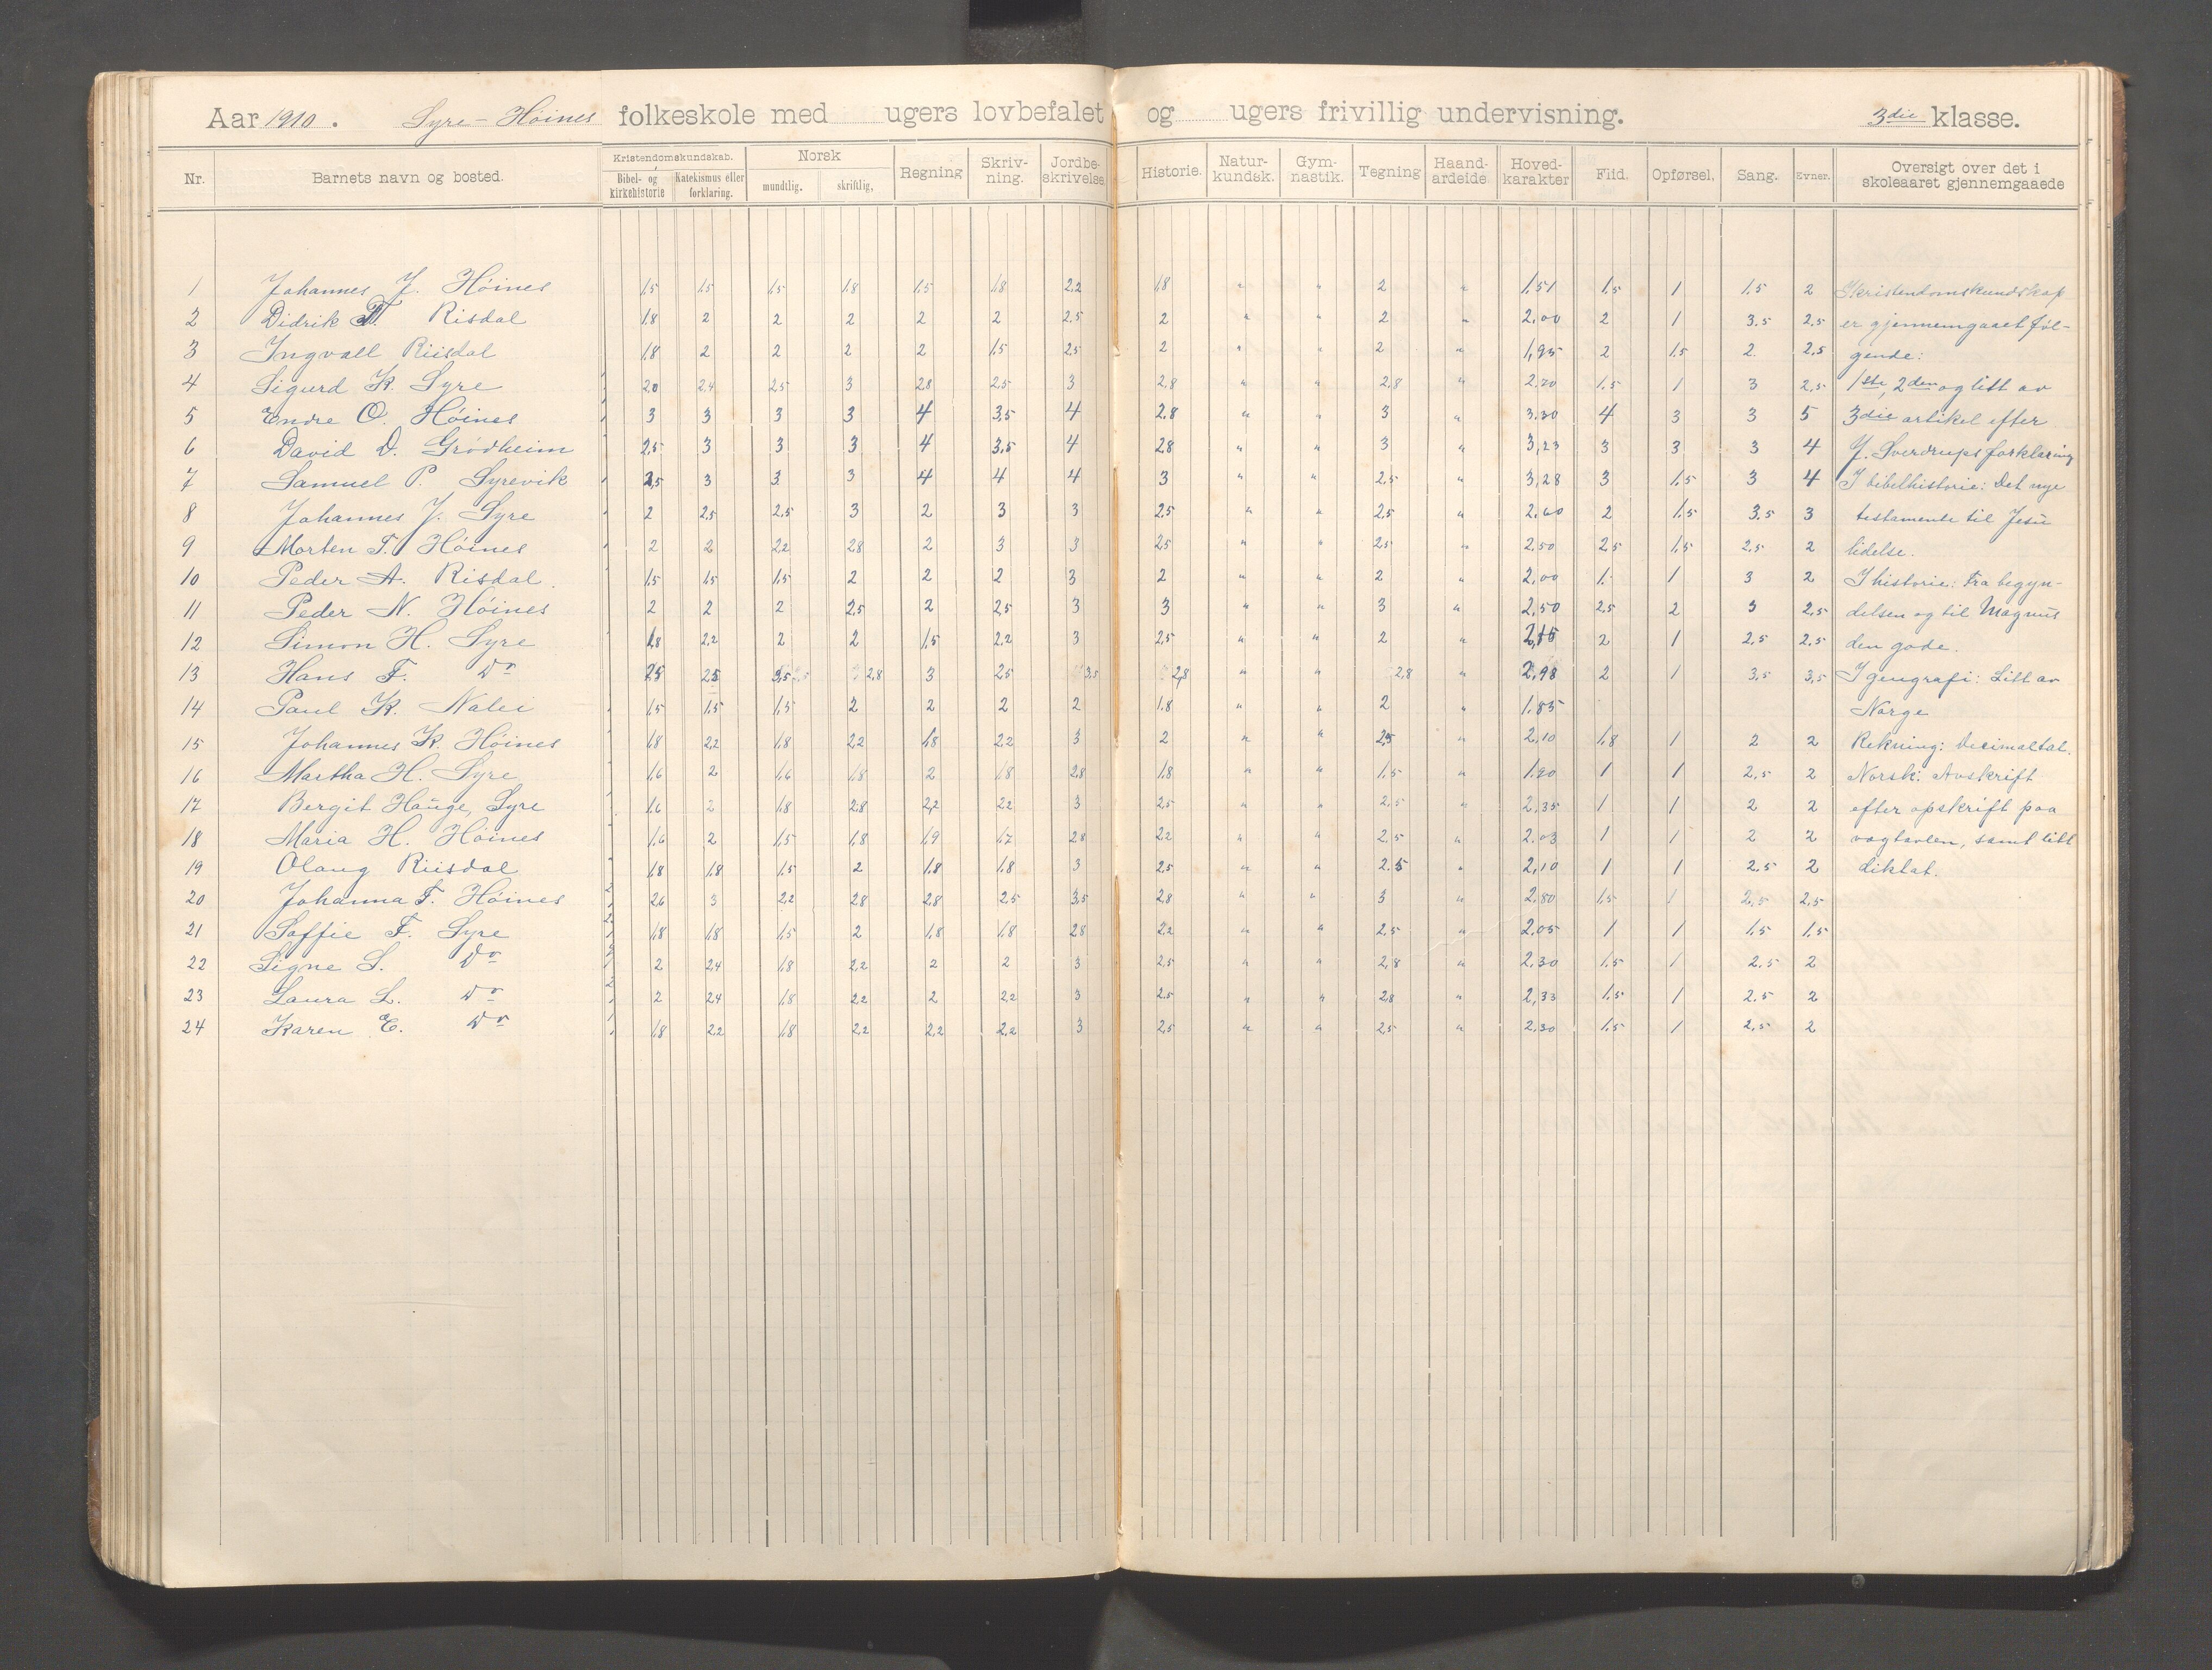 Aar 1910. Syre-Høines folkeskole med ugers lovbefalet og ugers frivillig undervisning. 3die klasse.
Nr. Barnets navn og bosted. Kristendomskundskab. Bibel- og kirkehistorie Katekismus eller forklaring. Norsk mundtlig. skriftlig, Regning Skriv-ning. Jordbe-skrivelse. Historie. Natur-kundsk. Gym-nastik. Tegning Haand-arbeide. Hoved-karakter Flid. Opførsel. Sang. Evner. Oversigt over det i skoleaaret gjennemgaaede
1 Johannes J. Høines 1,5 1,5 1,5 1,8 1,5 1,8 2,2 1,8 " " 2 " 1,51 1,5 1 1,5 2 I kristendomskundskap
2 Didrik T. Risdal 1,8 2 2 2 2 2 2,5 2 " " 2 " 2,00 2 1 3,5 2,5 er gjennemgaaet føl-
3 Ingvall Riisdal 1,8 2 2 2 2 1,5 2,5 2 " " 2 " 1,95 2 1,5 2 2,5 gende:
4 Sigurd K. Syre 2,0 2,4 2,5 3 2,8 2,5 3 2,8 " " 2,8 " 2,70 1,5 1 3 2,5 1ste, 2den og litt av
5 Endre O. Høines 3 3 3 3 4 3,5 4 2,8 " " 3 " 3,30 4 3 3 5 3die artikel efter
6 David D. Grødheim 2,5 3 3 3 4 3,5 4 2,8 " " 3 " 3,23 3 3 3 4 J. Sverdrups forklaring
7 Samuel P. Syrevik 2,5 3 3 3 4 4 4 3 " " 2,5 " 3,28 3 1,5 3 4 I bibelhistorie: Det nye
8 Johannes J. Syre 2 2,5 2,5 3 2 3 3 2,5 " " 2,5 " 2,60 2 1,5 3,5 3 testamente til Jesu
9 Morten T. Høines 2 2 2,2 2,8 2 3 3 2,5 " " 2,5 " 2,50 2,5 1,5 2,5 2 lidelse.
10 Peder A. Risdal. 1,5 1,5 1,5 2 2 2 3 2 " " 2 " 2,00 1 1 3 2 I historie: Fra begyn-
11 Peder N. Høines 2 2 2 2,5 2 2,5 3 3 " " 3 " 2,50 2,5 2 3 2,5 delsen og til Magnus
12 Simon H. Syre 1,8 2,2 2 2 1,5 2,2 3 2,5 " " 2 " 2,15 2 1 2,5 2,5 den gode.
13 Hans F. Do 2,5 2,5 3,5 2,8 3 2,5 3,5 2,8 " " 2,8 " 2,98 2 1 3,5 3,5 I geografi: Litt av
14 Paul K. Nalei 1,5 1,5 1,5 2 2 2 2 1,8 " " 2 " 1,85 Norge
15 Johannes K. Høines 1,8 2,2 1,8 2,2 1,8 2,2 3 2 " " 2,5 " 2,10 1,8 1 2 2 Rekning: Decimaltal.
16 Martha H. Syre 1,6 2 1,6 1,8 2 1,8 2,8 1,8 " " 1,5 " 1,90 1 1 2,5 2 Norsk: Avskrift
17 Bergit Hauge, Syre 1,6 2 1,8 2,8 2,2 2,2 3 2,5 " " 2,5 " 2,35 1 1 2 2 efter opskrift paa
18 Maria H. Høines 1,6 2 1,5 1,8 1,9 1,7 2,8 2,2 " " 2,5 " 2,03 1 1 2 2 vægtavlen, samt litt
19 Olaug Riisdal 1,8 1,8 1,5 2 1,8 1,8 3 2,5 " " 2.5 " 2,10 1 1 2.5 2 diktat.
20 Johanna T. Høines 2,6 3 2,2 2,8 2,8 2,5 3,5 2,8 " " 3 " 2,80 1,5 1 2,5 2,5
21 Soffie F. Syre 1,8 1,8 1,5 2 1,8 1,8 2,8 2,2 " " 2,5 " 2,05 1 1 1,5 1,5
22 Signe S. Do 2 2,4 1,8 2,2 2 2 3 2,5 " " 2,8 " 2,30 1,5 1 2,5 2
23 Laura L. Do 2 2,4 1,8 2,2 2 2,2 3 2,5 " " 2,8 " 2,33 1,5 1 2.5 2
24 Karen E. Do 1,8 2,2 1,8 2,2 2,2 2,2 3 2,5 " " 2,5 " 2,30 1,5 1 2,5 2